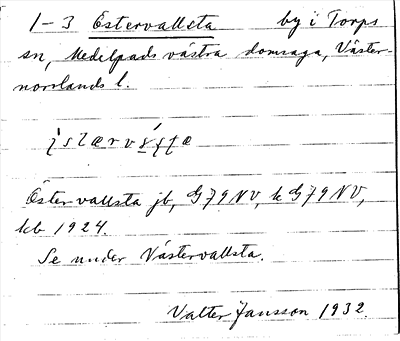 1-3 Östervallsta by i Torps
sn, Medelpads västra domsaga, Väster-
norrlands l.
Östervallsta jb, G79NV, k G79NV,
kb 1924.
Se under Västervallsta.
Valter Jansson 1932.